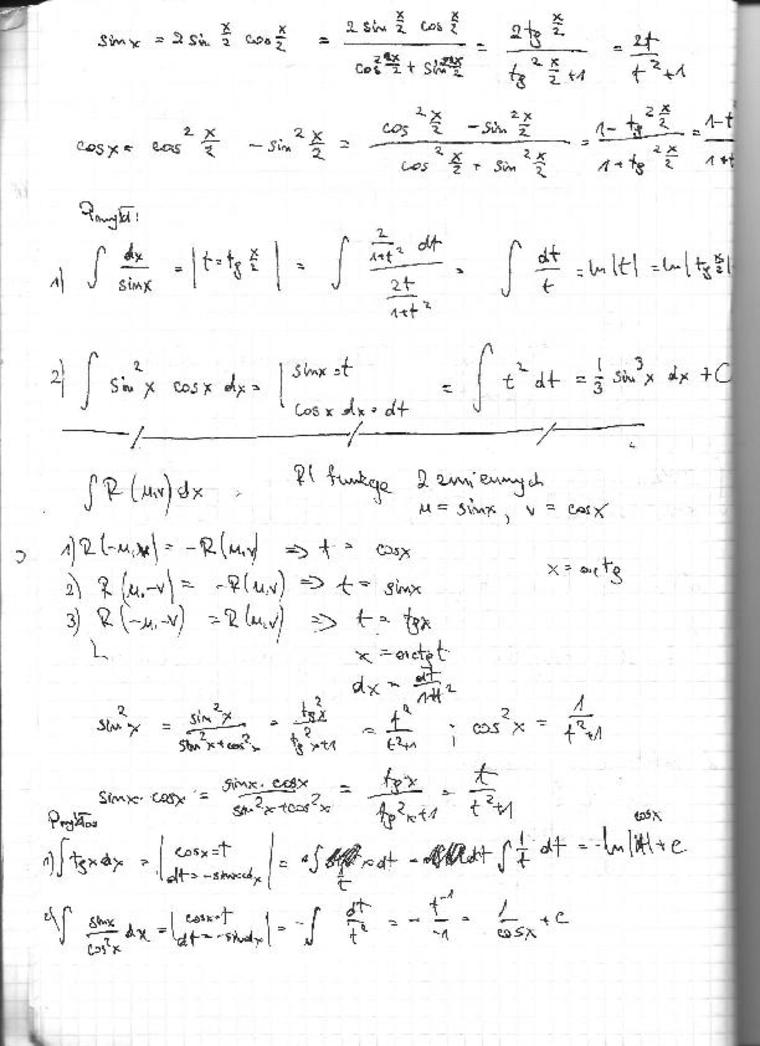 sin x = 2 sin x/2 cos x/2 = (2 sin x/2 cos x/2)/(cos² x/2 + sin² x/2) = (2 tg x/2)/(tg² x/2 + 1) = 2t/(t²+1)
cos x = cos² x/2 - sin² x/2 = (cos² x/2 - sin² x/2)/(cos² x/2 + sin² x/2) = (1 - tg² x/2)/(1 + tg² x/2) = (1-t)/(1+t
1) ∫ dx/sin x = | t = tg x/2 | = ∫ (2/(1+t²) dt)/(2t/(1+t²)) = ∫ dt/t = ln|t| = ln|tg x/2|
2) ∫ sin² x cos x dx = | sin x = t
cos x dx = dt = ∫ t² dt = 1/3 sin³ x dx + C
∫ R(u,v) dx R( funkcje 2 zmiennych
u = sin x, v = cos x
1) R(-u,v) = -R(u,v) ⇒ t = cos x
x = arctg
2) R(u,-v) = -R(u,v) ⇒ t = sin x
3) R(-u,-v) = R(u,v) ⇒ t = tg x
x = arctg t
dx = dt/(1+t²)
sin² x = sin² x/(sin² x + cos² x) = tg² x/(tg² x + 1) = t²/(t²+1) ; cos² x = 1/(t²+1)
sin x · cos x = (sin x · cos x)/(sin² x + cos² x) = tg x/(tg² x + 1) = t/(t²+1)
1) ∫ tg x dx = | cos x = t
dt = -sin x dx | = ∫ 1/t dt = -ln|t| + c
cos x
2) ∫ sin x/cos² x dx = | cos x = t
dt = -sin dx | = -∫ dt/t² = - t⁻¹/-1 = 1/cos x + c